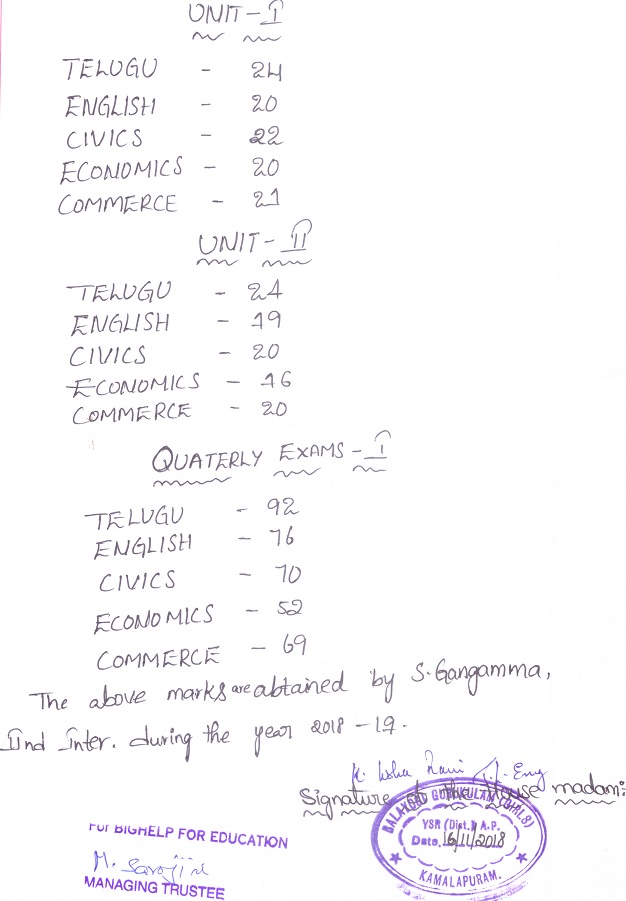 UNIT - I
TELUGU - 24
ENGLISH - 20
CIVICS - 22
ECONOMICS - 20
COMMERCE - 21
UNIT - II
TELUGU - 24
ENGLISH - 19
CIVICS - 20
ECONOMICS - 16
COMMERCE - 20
QUATERLY EXAMS - I
TELUGU - 92
ENGLISH - 76
CIVICS - 70
ECONOMICS - 52
COMMERCE - 69
The above marks are abtained by S. Gangamma,
IInd Inter. during the year 2018 - 19.
K. Usha Rani
Signature of the House madam:
BALAYOGI GURUKULAM (GIRLS)
YSR (Dist.) A.P.
Date. 16/11/2018
KAMALAPURAM.
For BIGHELP FOR EDUCATION
M. Sarojini
MANAGING TRUSTEE